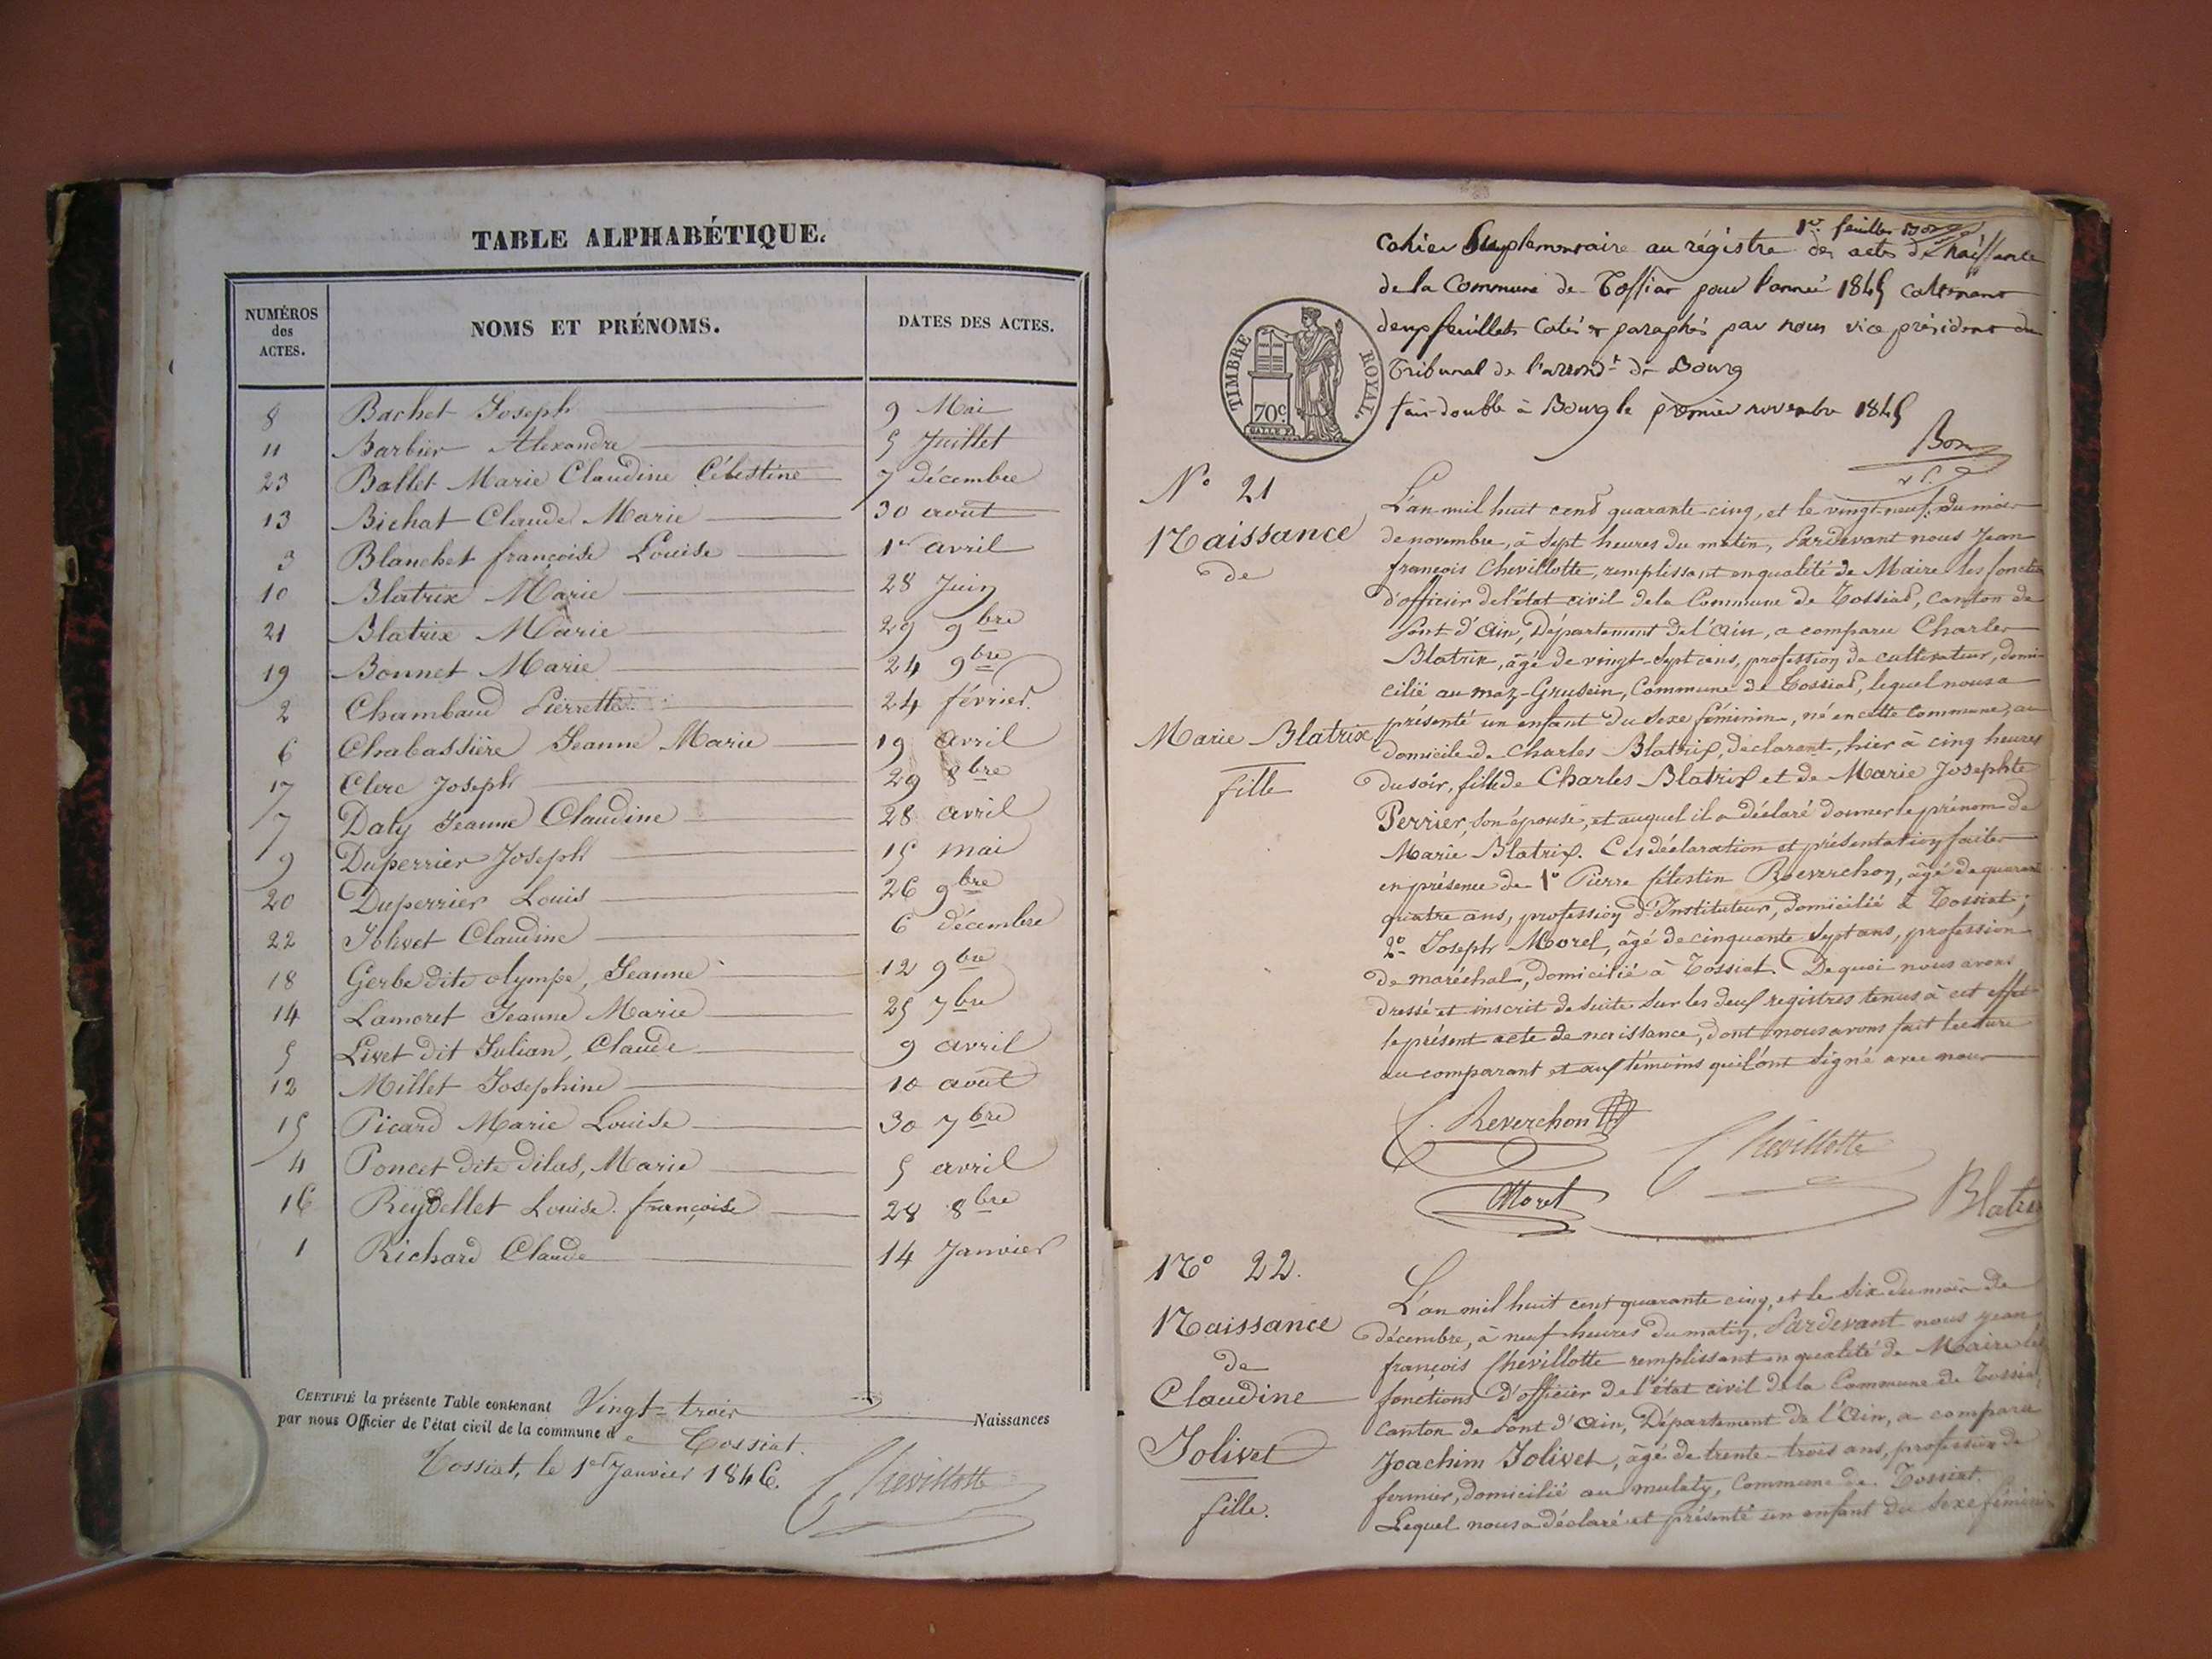 TABLE ALPHABÉTIQUE.
NUMÉROS des ACTES. NOMS ET PRÉNOMS. DATES DES ACTES.
8 Bachet Joseph 9 Mai
11 Barbier Alexandre 5 Juillet
23 Ballet Marie Claudine Célestine 7 décembre
13 Bichat Claude Marie 30 août
3 Blanchet françoise Louise 1er avril
10 Blatrix Marie 28 Juin
21 Blatrix Marie 29 9bre
19 Bonnet Marie 24 9bre
2 Chambaud Pierrette 24 février.
6 Chabassière Jeanne Marie 19 avril
17 Clerc Joseph 29 8bre
7 Daty Jeanne Claudine 28 avril
9 Duperrier Joseph 15 mai
20 Duperrier Louis 26 9bre
22 Jolivet Claudine 6 décembre
18 Gerbe dite olympe, Jeanne 12 9bre
14 Lamoret Jeanne Marie 25 7bre
5 Livet dit Julian, Claude 9 avril
12 Millet Josephine 10 août
15 Picard Marie Louise 30 7bre
4 Poncet dite Dilas, Marie 5 avril
16 Reydellet Louise françoise 28 8bre
1 Richard Claude 14 Janvier
CERTIFIÉ la présente Table contenant Vingt-trois Naissances
par nous Officier de l'état civil de la commune de Tossiat.
Tossiat, le 1er Janvier 1846.
Chevillotte
1er feuillet Bon
Cahier Suplementaire au régistre des actes de naissance
de la Commune de Tossiat pour l'année 1845 contenant
deux feuillets cotés & paraphés par nous vice président du
Tribunal de l'arrondt de Bourg
fait double à Bourg le premier novembre 1845
Bon
TIMBRE ROYAL.
70c.
N° 21
Naissance
de
Marie Blatrix
fille
L'an mil huit cent quarante-cinq, et le vingt-neuf du mois
de novembre, à sept heures du matin, Pardevant nous Jean
françois Chevillotte, remplissant en qualité de Maire les fonctions
d'officier de l'état civil de la Commune de Tossiat, canton de
Pont d'Ain, Département de l'Ain, a comparu Charles
Blatrix, âgé de vingt-sept ans, profession de cultivateur, domi-
cilié au maz-Grusein, Commune de Tossiat, lequel nous a
présenté un enfant du sexe féminin, né en cette commune, au
domicile de Charles Blatrix, déclarant, hier à cinq heures
du soir, fille de Charles Blatrix et de Marie Josephte
Perrier, son épouse, et auquel il a déclaré donner le prénom de
Marie Blatrix. Ces déclaration et présentation faites
en présence de 1° Pierre Célestin Reverchon, âgé de quarante
quatre ans, profession d'Instituteur, domicilié à Tossiat;
2° Joseph Morel, âgé de cinquante sept ans, profession
de maréchal, domicilié à Tossiat. De quoi nous avons
dressé et inscrit de suite sur les deux registres tenus à cet effet
le présent acte de naissance, dont nous avons fait lecture
au comparant et aux témoins qui l'ont signé avec nous
C. Reverchon
Chevillotte
Morel
Blatrix
N° 22.
Naissance
de
Claudine
Jolivet
fille.
L'an mil huit cent quarante cinq, et le six du mois de
décembre, à neuf heures du matin, Pardevant nous Jean
françois Chevillotte remplissant en qualité de Maire les
fonctions d'officier de l'état civil de la Commune de Tossiat,
canton de Pont d'Ain, Département de l'Ain, a comparu
Joachim Jolivet, âgé de trente-trois ans, profession de
fermier, domicilié au mulaty, Commune de Tossiat.
Lequel nous a déclaré et présenté un enfant du sexe féminin